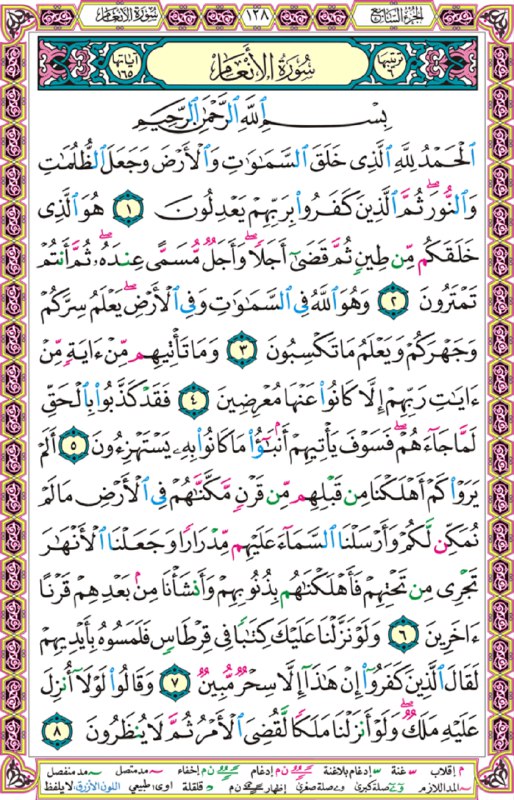 الجزء السابع ١٢٨ سورة الأنعام
ترتيبها ٦ سورة الأنعام آياتها ١٦٥
بِسْمِ ٱللَّهِ ٱلرَّحْمَٰنِ ٱلرَّحِيمِ
ٱلْحَمْدُ لِلَّهِ ٱلَّذِى خَلَقَ ٱلسَّمَٰوَٰتِ وَٱلْأَرْضَ وَجَعَلَ ٱلظُّلُمَٰتِ
وَٱلنُّورَ ۖ ثُمَّ ٱلَّذِينَ كَفَرُوا۟ بِرَبِّهِمْ يَعْدِلُونَ ١ هُوَ ٱلَّذِى
خَلَقَكُم مِّن طِينٍ ثُمَّ قَضَىٰٓ أَجَلًا ۖ وَأَجَلٌ مُّسَمًّى عِندَهُۥ ۖ ثُمَّ أَنتُمْ
تَمْتَرُونَ ٢ وَهُوَ ٱللَّهُ فِى ٱلسَّمَٰوَٰتِ وَفِى ٱلْأَرْضِ ۖ يَعْلَمُ سِرَّكُمْ
وَجَهْرَكُمْ وَيَعْلَمُ مَا تَكْسِبُونَ ٣ وَمَا تَأْتِيهِم مِّنْ ءَايَةٍ مِّنْ
ءَايَٰتِ رَبِّهِمْ إِلَّا كَانُوا۟ عَنْهَا مُعْرِضِينَ ٤ فَقَدْ كَذَّبُوا۟ بِٱلْحَقِّ
لَمَّا جَآءَهُمْ ۖ فَسَوْفَ يَأْتِيهِمْ أَنۢبَٰٓؤُا۟ مَا كَانُوا۟ بِهِۦ يَسْتَهْزِءُونَ ٥ أَلَمْ
يَرَوْا۟ كَمْ أَهْلَكْنَا مِن قَبْلِهِم مِّن قَرْنٍ مَّكَّنَّٰهُمْ فِى ٱلْأَرْضِ مَا لَمْ
نُمَكِّن لَّكُمْ وَأَرْسَلْنَا ٱلسَّمَآءَ عَلَيْهِم مِّدْرَارًا وَجَعَلْنَا ٱلْأَنْهَٰرَ
تَجْرِى مِن تَحْتِهِمْ فَأَهْلَكْنَٰهُم بِذُنُوبِهِمْ وَأَنشَأْنَا مِنۢ بَعْدِهِمْ قَرْنًا
ءَاخَرِينَ ٦ وَلَوْ نَزَّلْنَا عَلَيْكَ كِتَٰبًا فِى قِرْطَاسٍ فَلَمَسُوهُ بِأَيْدِيهِمْ
لَقَالَ ٱلَّذِينَ كَفَرُوٓا۟ إِنْ هَٰذَآ إِلَّا سِحْرٌ مُّبِينٌ ٧ وَقَالُوا۟ لَوْلَآ أُنزِلَ
عَلَيْهِ مَلَكٌ ۖ وَلَوْ أَنزَلْنَا مَلَكًا لَّقُضِىَ ٱلْأَمْرُ ثُمَّ لَا يُنظَرُونَ ٨
م إقلاب غنة إدغام بلاغنة ن م إدغام ن م إخفاء مد متصل مد منفصل
المد اللازم صلة كبرى صلة صغرى إظهار ن م قلقلة اوى: طبيعي اللون الأزرق: لا يلفظ